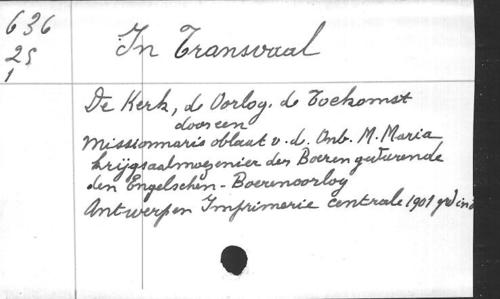 636
25
1
In Transvaal
De Kerk, de Oorlog. de Toekomst
door een
Missionnaris oblaat v. d. Onb. M. Maria
krijgsaalmoezenier der Boeren gedurende
den Engelschen-Boerenoorlog
Antwerpen Imprimerie centrale 1901